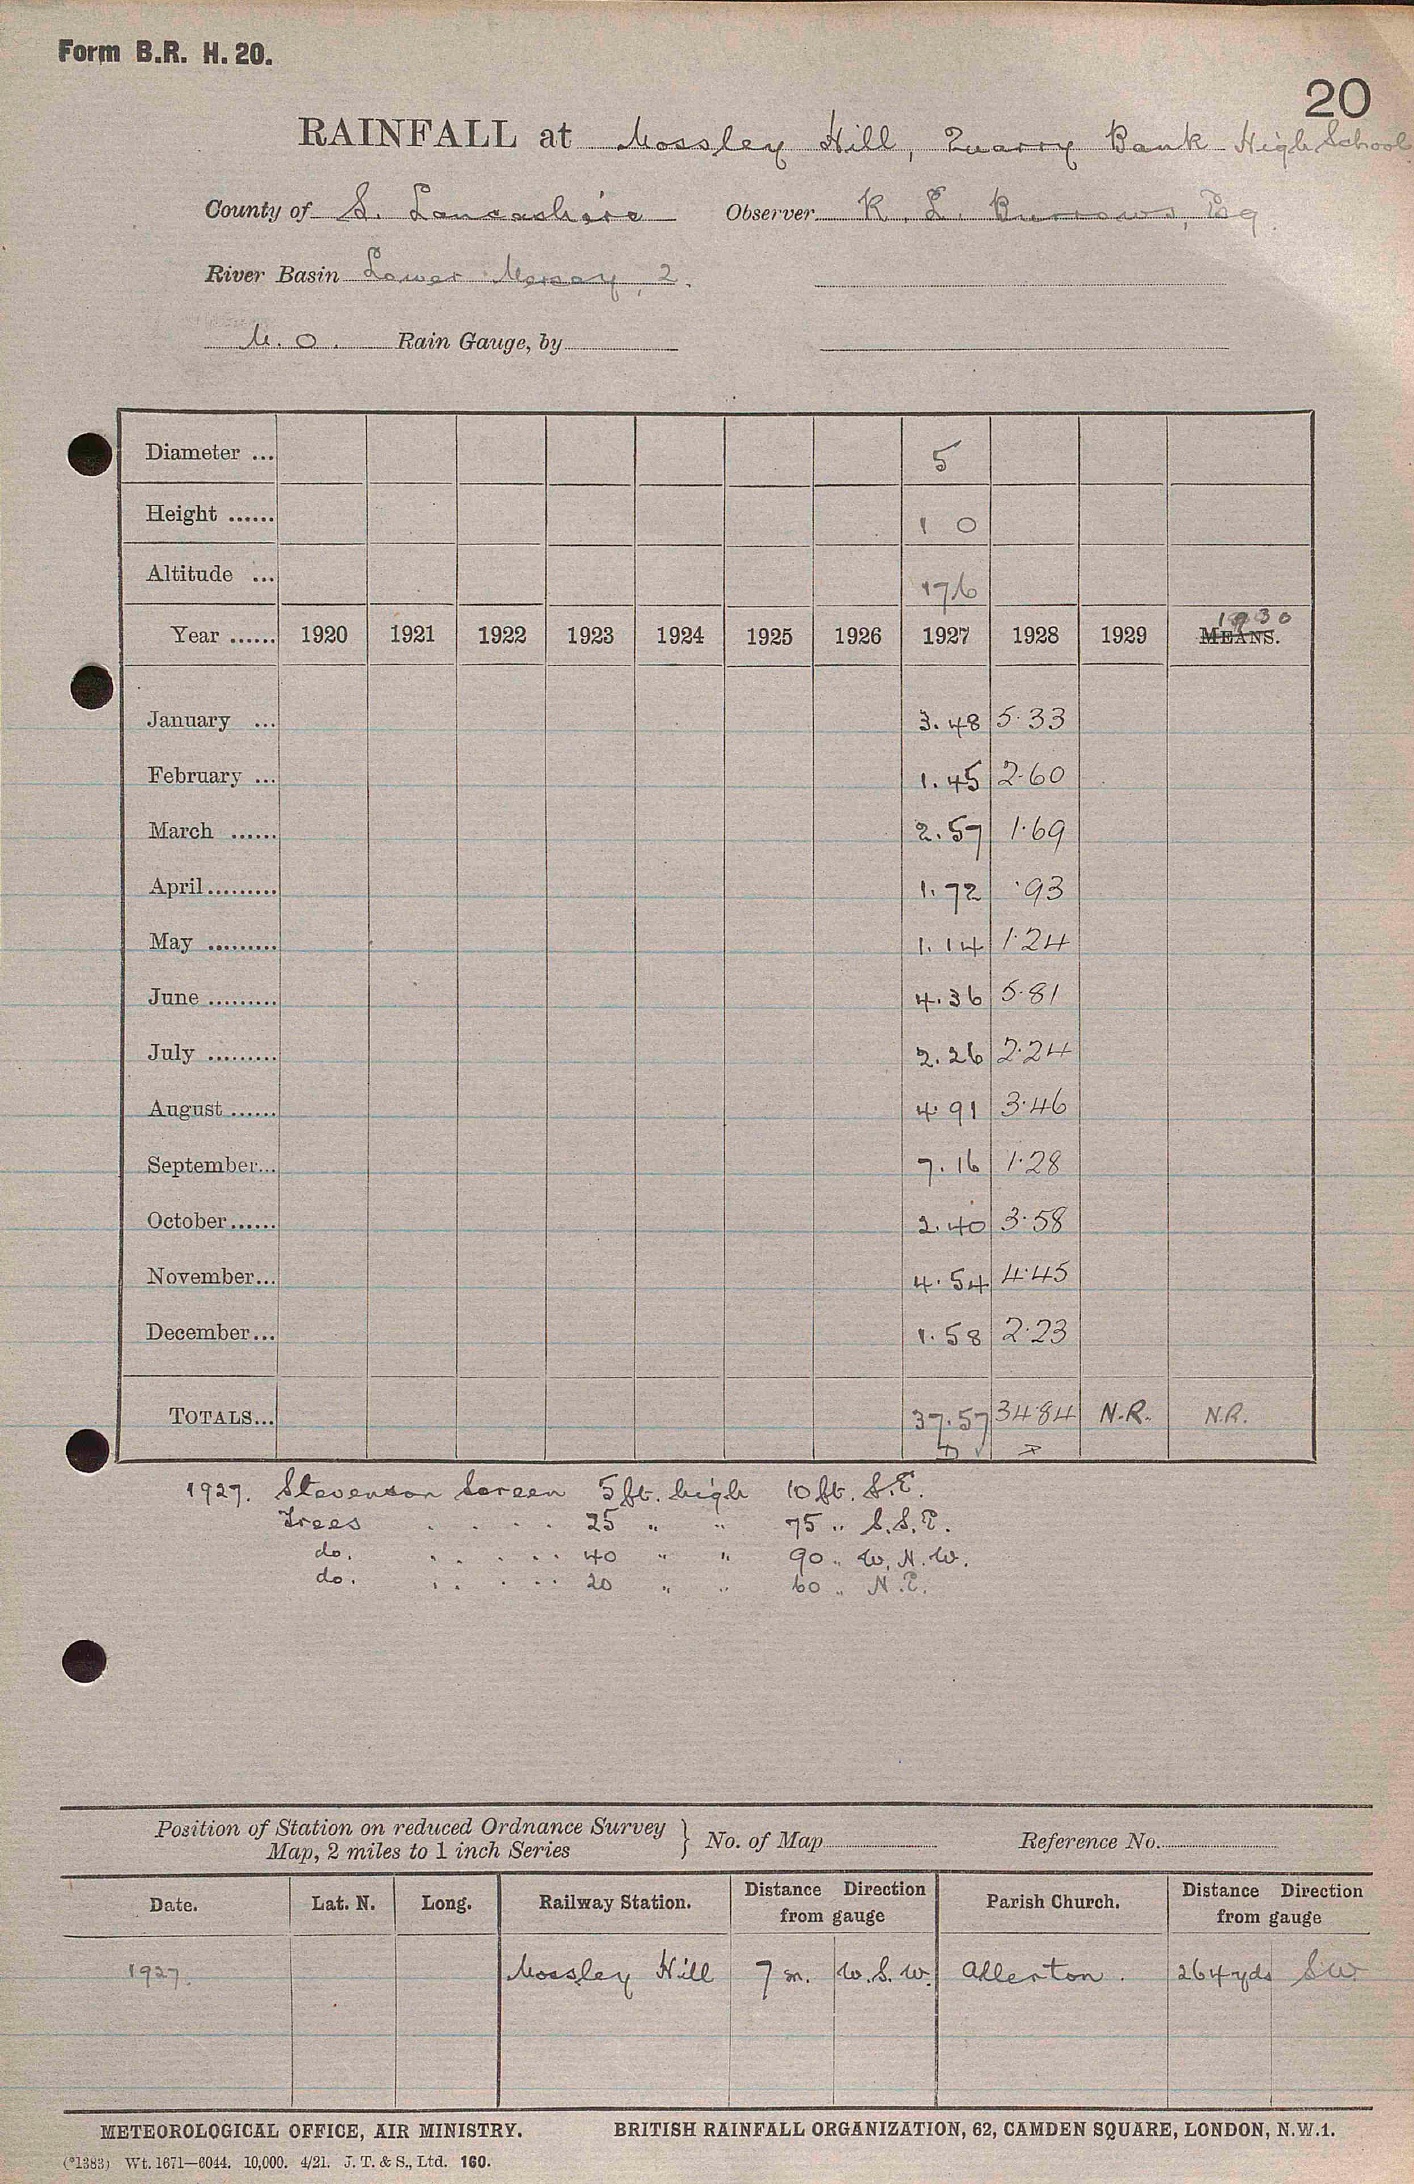 Form B.R. H. 20.
20
RAINFALL at Mossley Hill, Quarry Bank High School
County of S. Lancashire Observer K. L. Burrows, Esq.
River Basin Lower Mersey, 2.
M. O. Rain Gauge, by
Diameter ... 5
Height ...... 1 0
Altitude ... 176
Year ...... 1920 1921 1922 1923 1924 1925 1926 1927 1928 1929 1930 MEANS.
January ... 3.48 5.33
February ... 1.45 2.60
March ...... 2.57 1.69
April ......... 1.72 .93
May ......... 1.14 1.24
June ......... 4.36 5.81
July ......... 2.26 2.24
August ...... 4.91 3.46
September... 7.16 1.28
October ...... 2.40 3.58
November... 4.54 4.45
December... 1.58 2.23
TOTALS... 37.57 34.84 N.R. N.R.
1927. Stevenson Screen 5 ft. high 10 ft. S.E.
Trees . . . . 25 " " 75 " S.S.E.
do. . . . . . 40 " " 90 " W.N.W.
do. . . . . . 20 " " 60 " N.E.
Position of Station on reduced Ordnance Survey
Map, 2 miles to 1 inch Series } No. of Map Reference No.
Date. Lat. N. Long. Railway Station. Distance Direction from gauge Parish Church. Distance Direction from gauge
1927. Mossley Hill 7 m. W.S.W. Allerton. 264 yds SW
METEOROLOGICAL OFFICE, AIR MINISTRY. BRITISH RAINFALL ORGANIZATION, 62, CAMDEN SQUARE, LONDON, N.W.1.
(*1383) Wt. 1671—6044. 10,000. 4/21. J. T. & S., Ltd. 160.